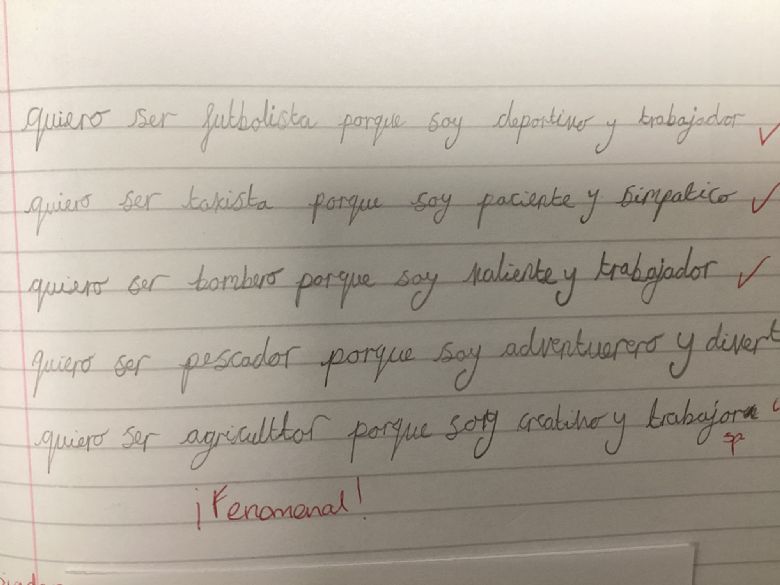 quiero ser futbolista porque soy deportivo y trabajador ✓
quiero ser taxista porque soy paciente y simpatico ✓
quiero ser bombero porque soy valiente y trabajador ✓
quiero ser pescador porque soy adventuerero y divert
quiero ser agriculttor porque soy creativo y trabajora
sp
¡Fenomenal!